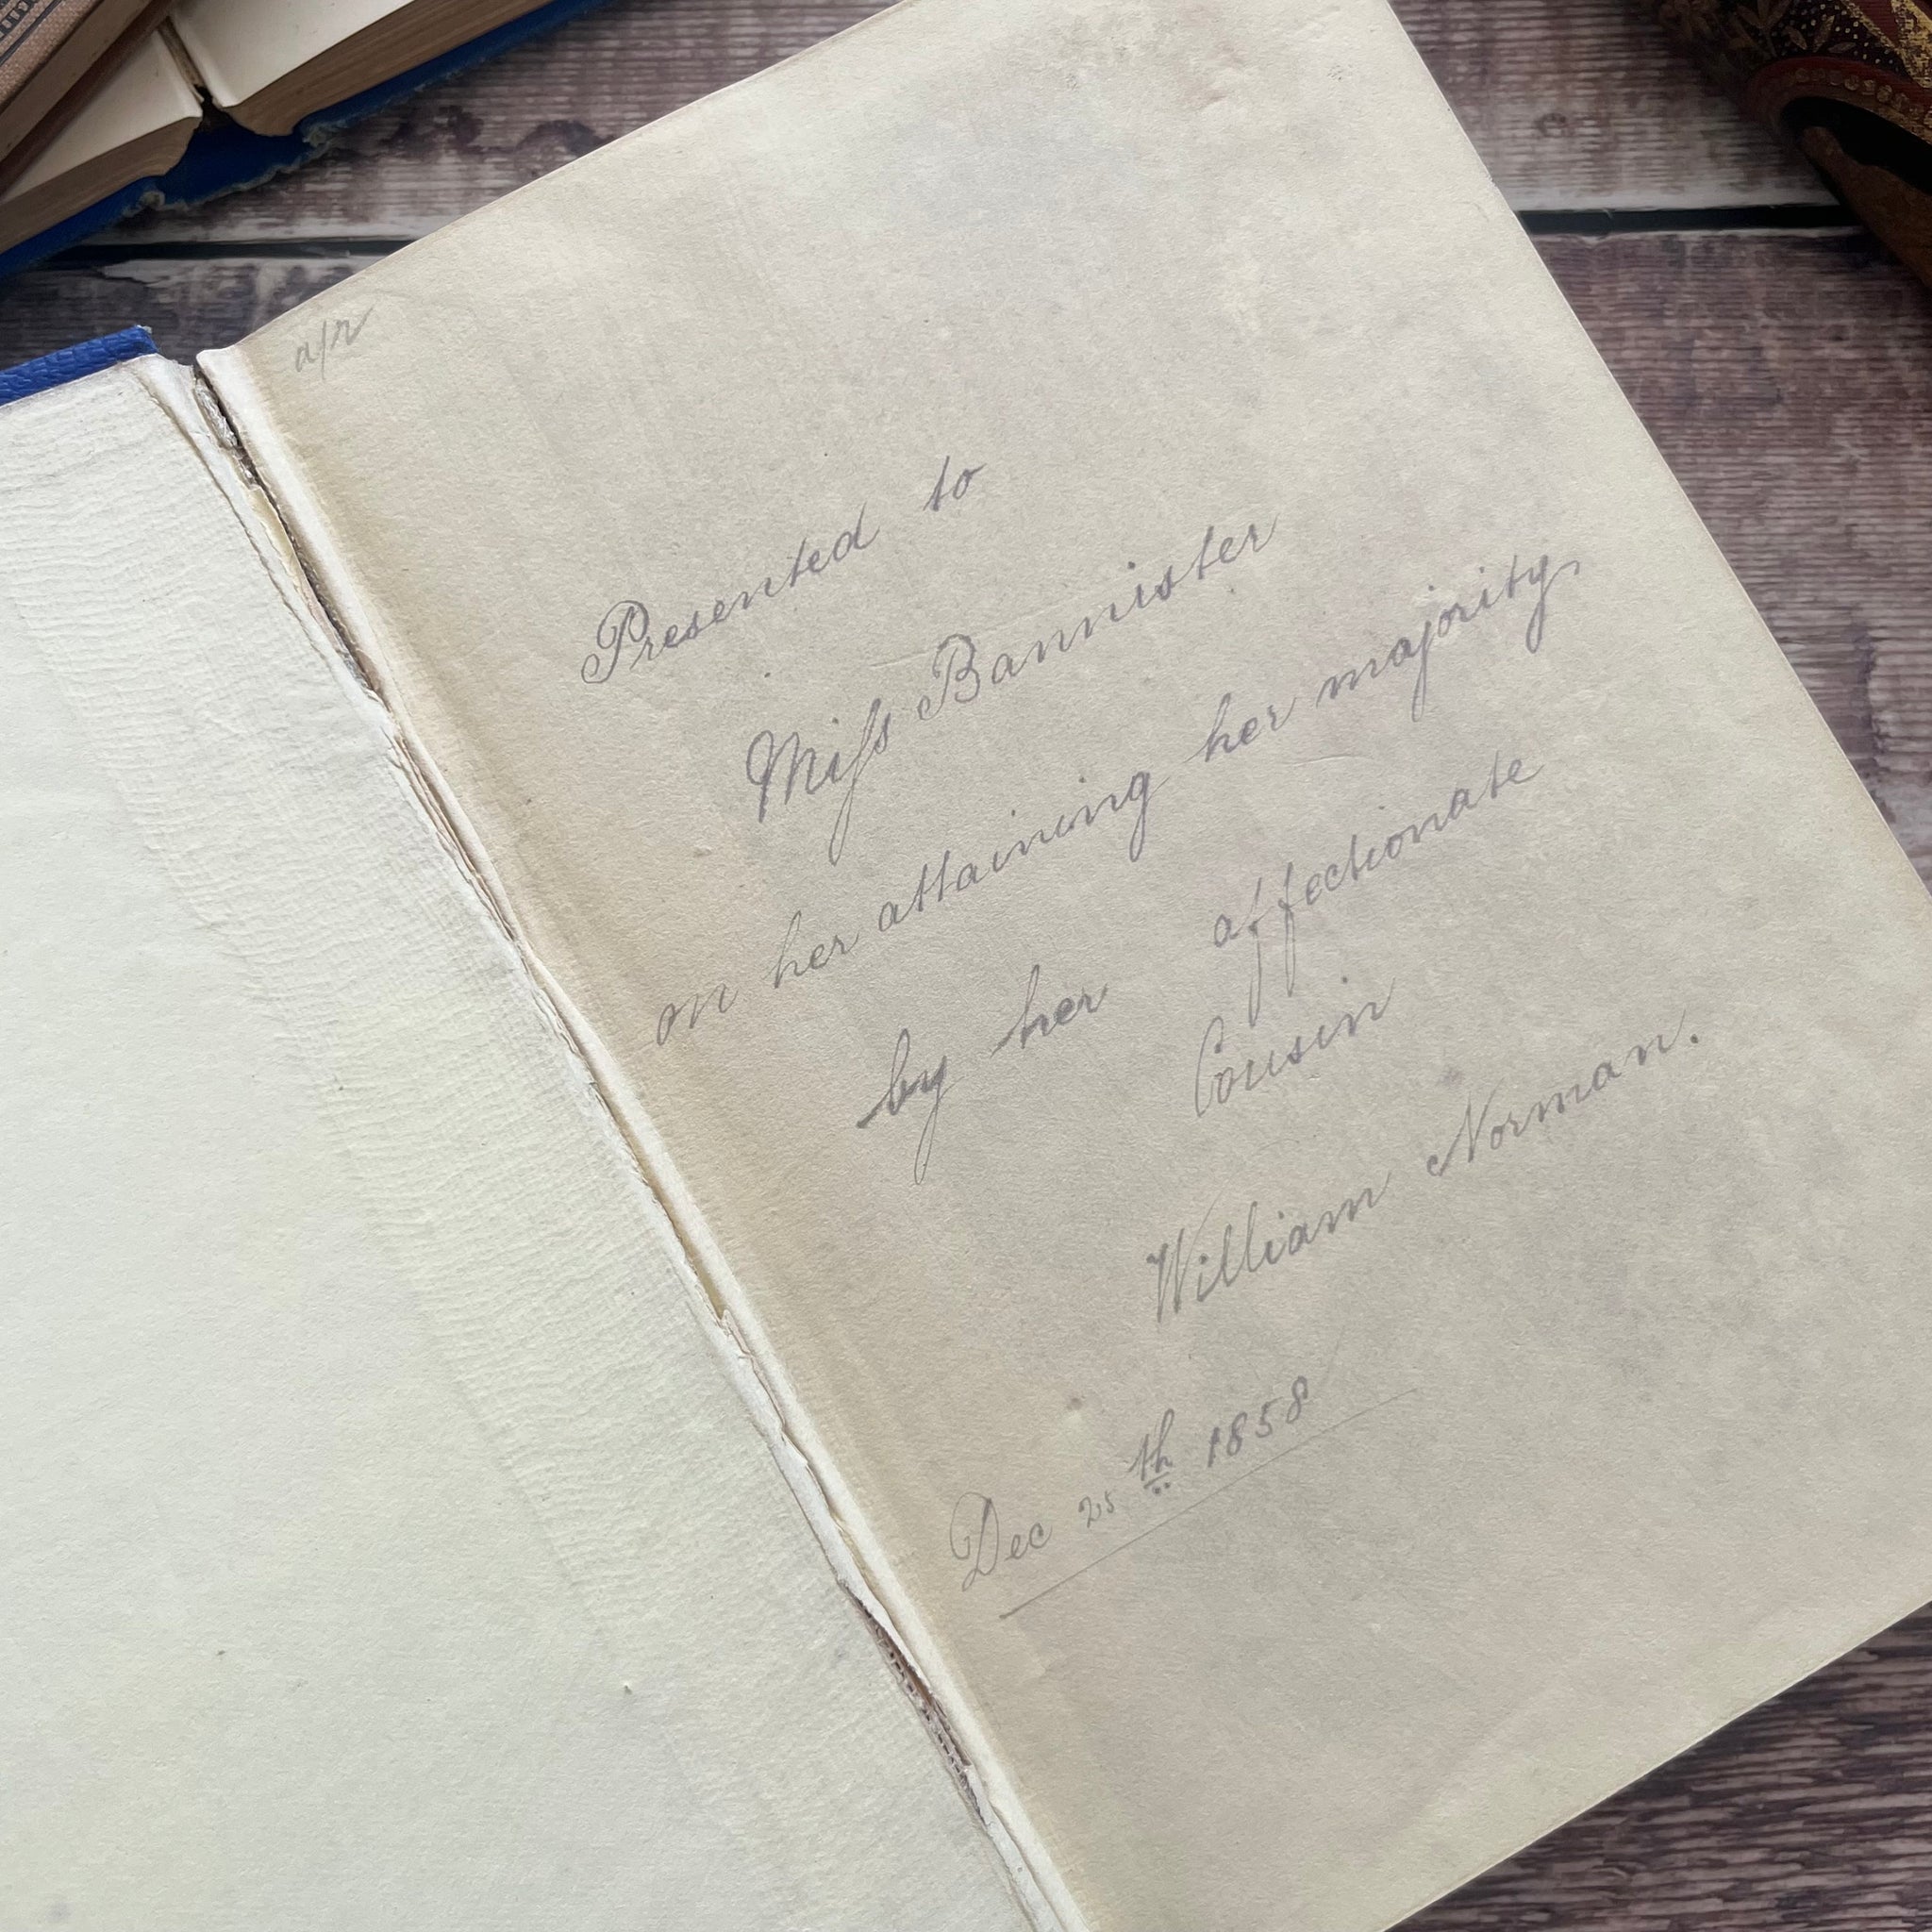 a/r
Presented to
Miſs Bannister
on her attaining her majority
by her affectionate
Cousin
William Norman.
Dec 25th 1858